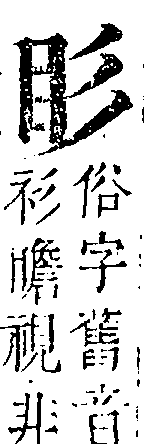 俗字舊音
衫瞻視非